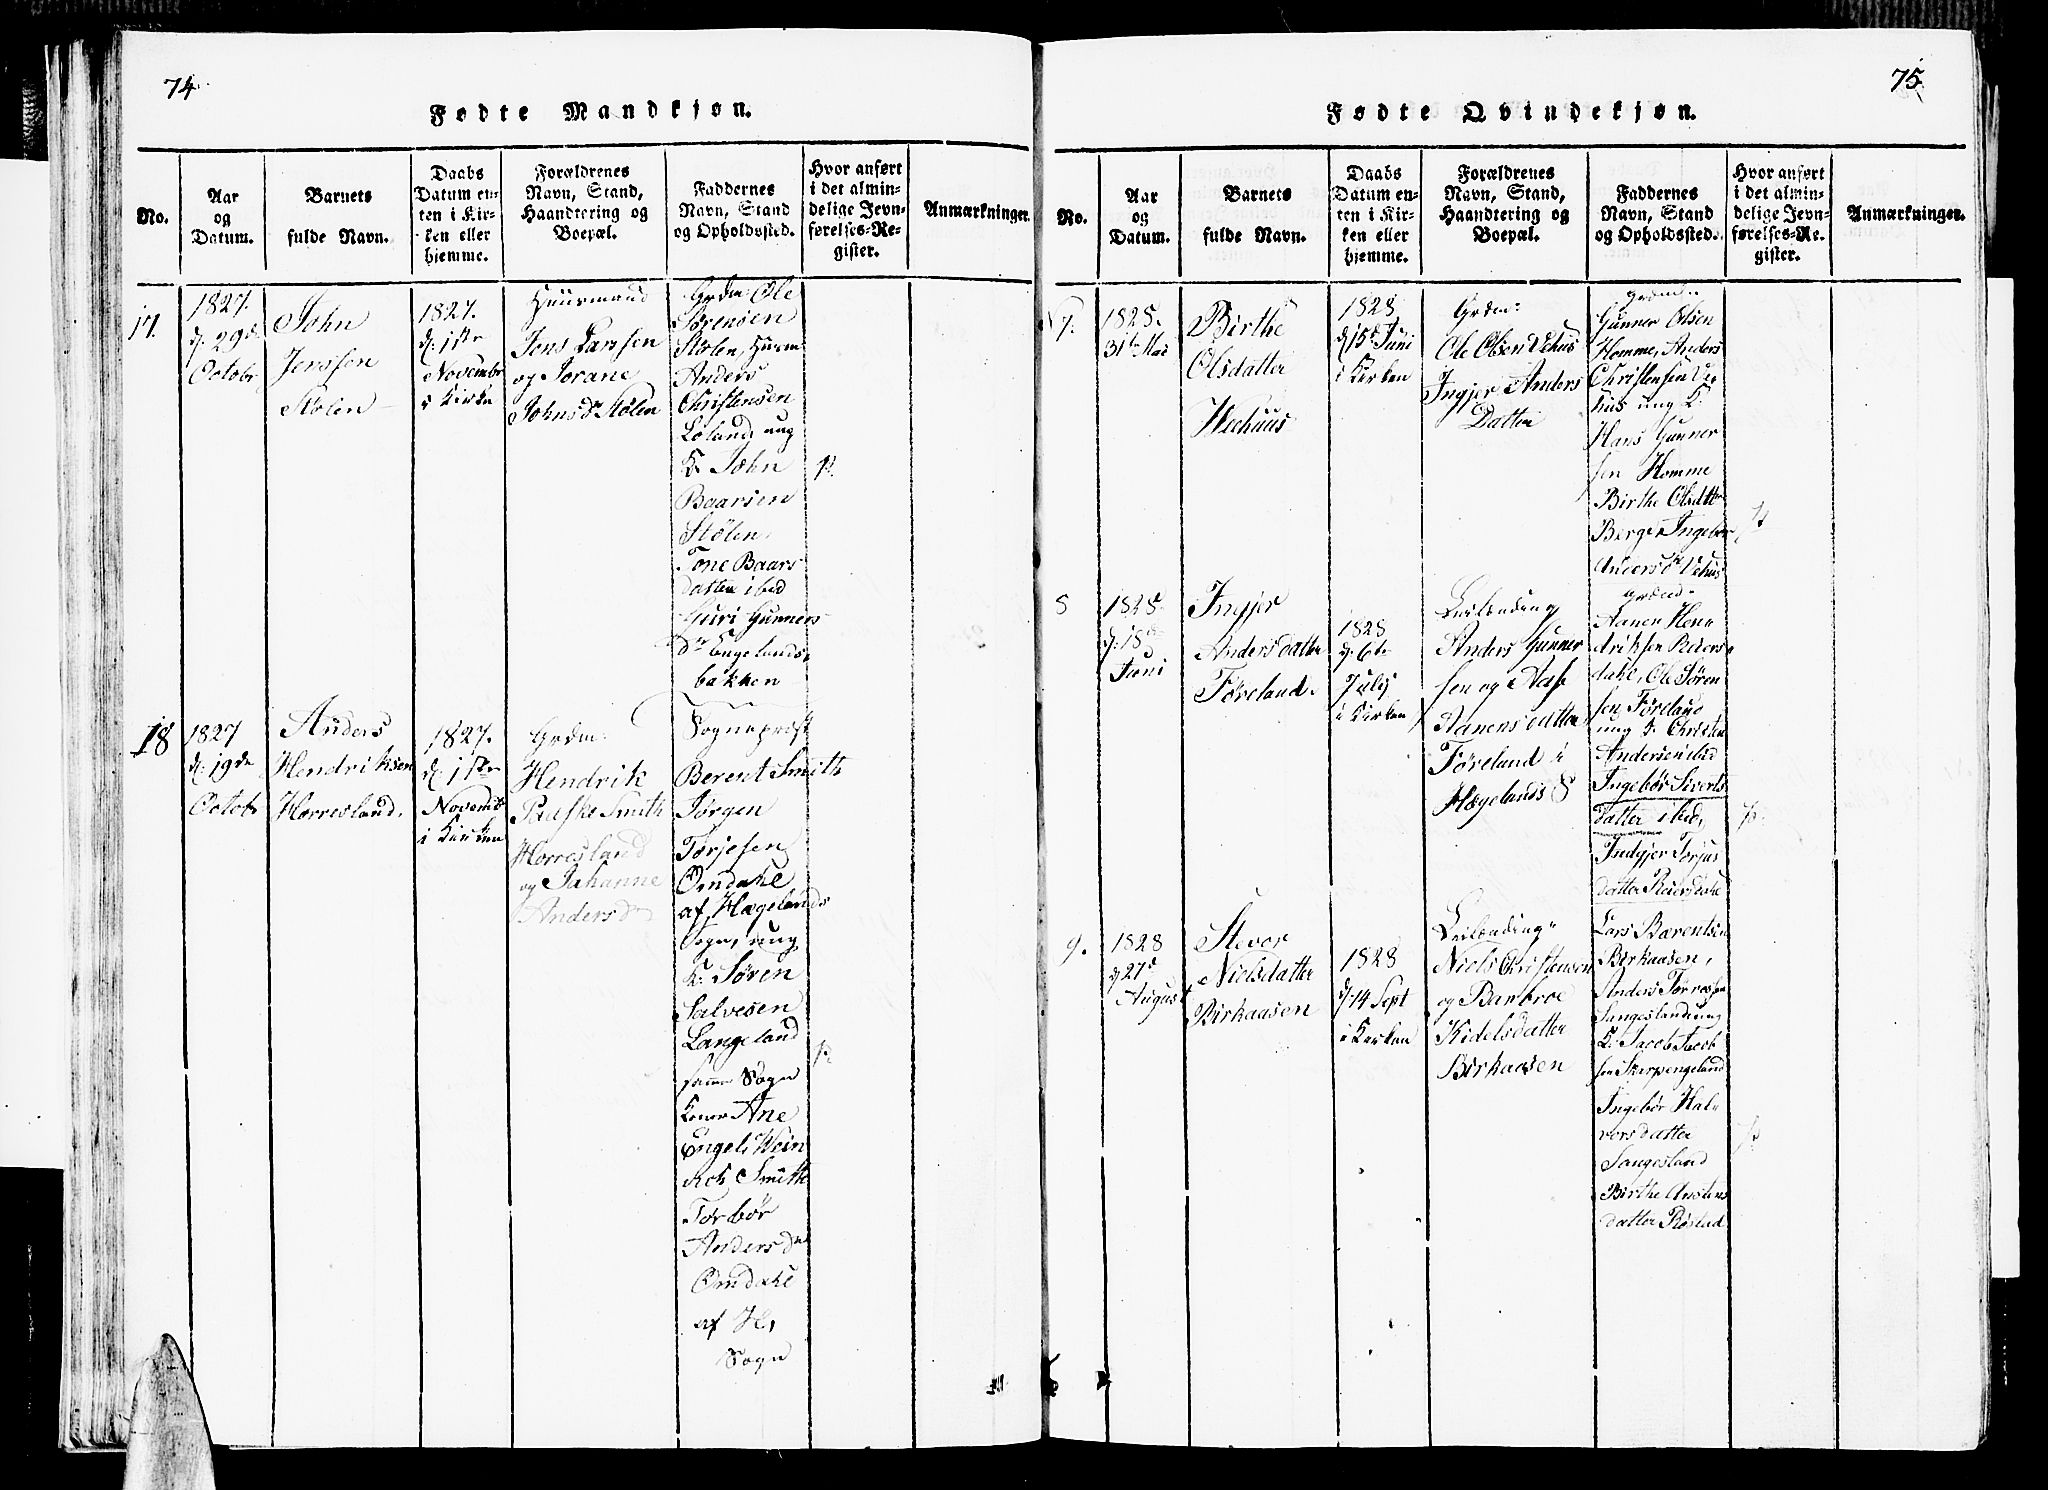 74
Fødte Mandkjøn.
No.
Aar
og
Datum.
Barnets
fulde Navn.
Daabs
Datum en-
ten i Kir-
ken eller
hjemme.
Forældrenes
Navn, Stand,
Haandtering og
Boepæl.
Faddernes
Navn, Stand
og Opholdssted.
Hvor anført
i det almin-
delige Jevn-
førelses-Re-
gister.
Anmærkninger.
17.
1827.
d. 29de
Octobr
John
Jenssen
Stølen
1827.
d. 1ste
Novembr
i Kirke
Huusmand
Jens Larssen
og Jorane
Johnsdr Stølen
Grdm: Ole
Sørensen
Stølen, Huusm
Anders
Christensen
Loland, ung
K. John
Baarsen
Stølen
Tone Baars
datter ibid
Guri Gunners
Dr Engelands
bakken
18
1827
d. 19de
Octobr
Anders
Hendriksen
Horresland.
1827.
d. 1ste
Novembr
i Kirken
Grdm:
Hendrik
Paaske Smith
Horresland
og Johanne
Andersdr
Sogneprest
Berent Smith
Jørgen
Torjesen
Omdahl
af Hægelands
Sogn, ung
K. Søren
Salvesen
Langeland
samme Sogn
Koner Ane
Engel Wein
Smith
Torbør
Andersdr
Omdahl
af H.
Sogn
75
Fødte Qvindekjøn.
No.
Aar
og
Datum.
Barnets
fulde Navn.
Daabs
Datum en-
ten i Kir-
ken eller
hjemme.
Forældrenes
Navn, Stand,
Haandtering og
Boepæl.
Faddernes
Navn, Stand
og Opholdssted.
Hvor anført
i det almin-
delige Jevn-
førelses-Re-
gister.
Anmærkninger.
7.
1828.
31te Mai
Birthe
Olsdatter
Weehuus
1828
d 15de Juni
i Kirken
Grdm:
Ole Olsen Vehus
Ingjer Anders
Datter
Grdmd.
Gunner Olsen
Homme, Anders
Christensen Ve-
hus ung K.
Hans Gunner
sen Homme
Birthe Olsdttr
Berge Ingebor
Andersdr Vehus
8
1828.
d. 18de
Juni
Ingjer
Andersdatter
Føreland.
1828
d. 6te
July
i Kirken
Leilænding
Anders Gunner
sen og Aase
Aanensdatter
Føreland i
Hægelands S
Grdmd.
Aanen Hen-
driksen Reiers-
dahl, Ole Søren
sen Føreland
ung K. Christen
Andersen ibid
Ingebør Siverts
datter ibid,
Indgjer Torjus
datter Reiersdahl
9.
1828
d 27de
August
Stevor
Nielsdatter
Birkaasen
1828
d. 14 Sept
i Kirken
Leilænding
Niels Christensen
og Barbroe
Kidelsdatter
Birkaasen
Lars Bærentsen
Birkaasen,
Anders Torresen
Sangesland ung
K. Jacob Jacob
sen Skarpengeland
Ingebør Hal-
vorsdatter
Sangesland
Birthe Austens
datter Røstad